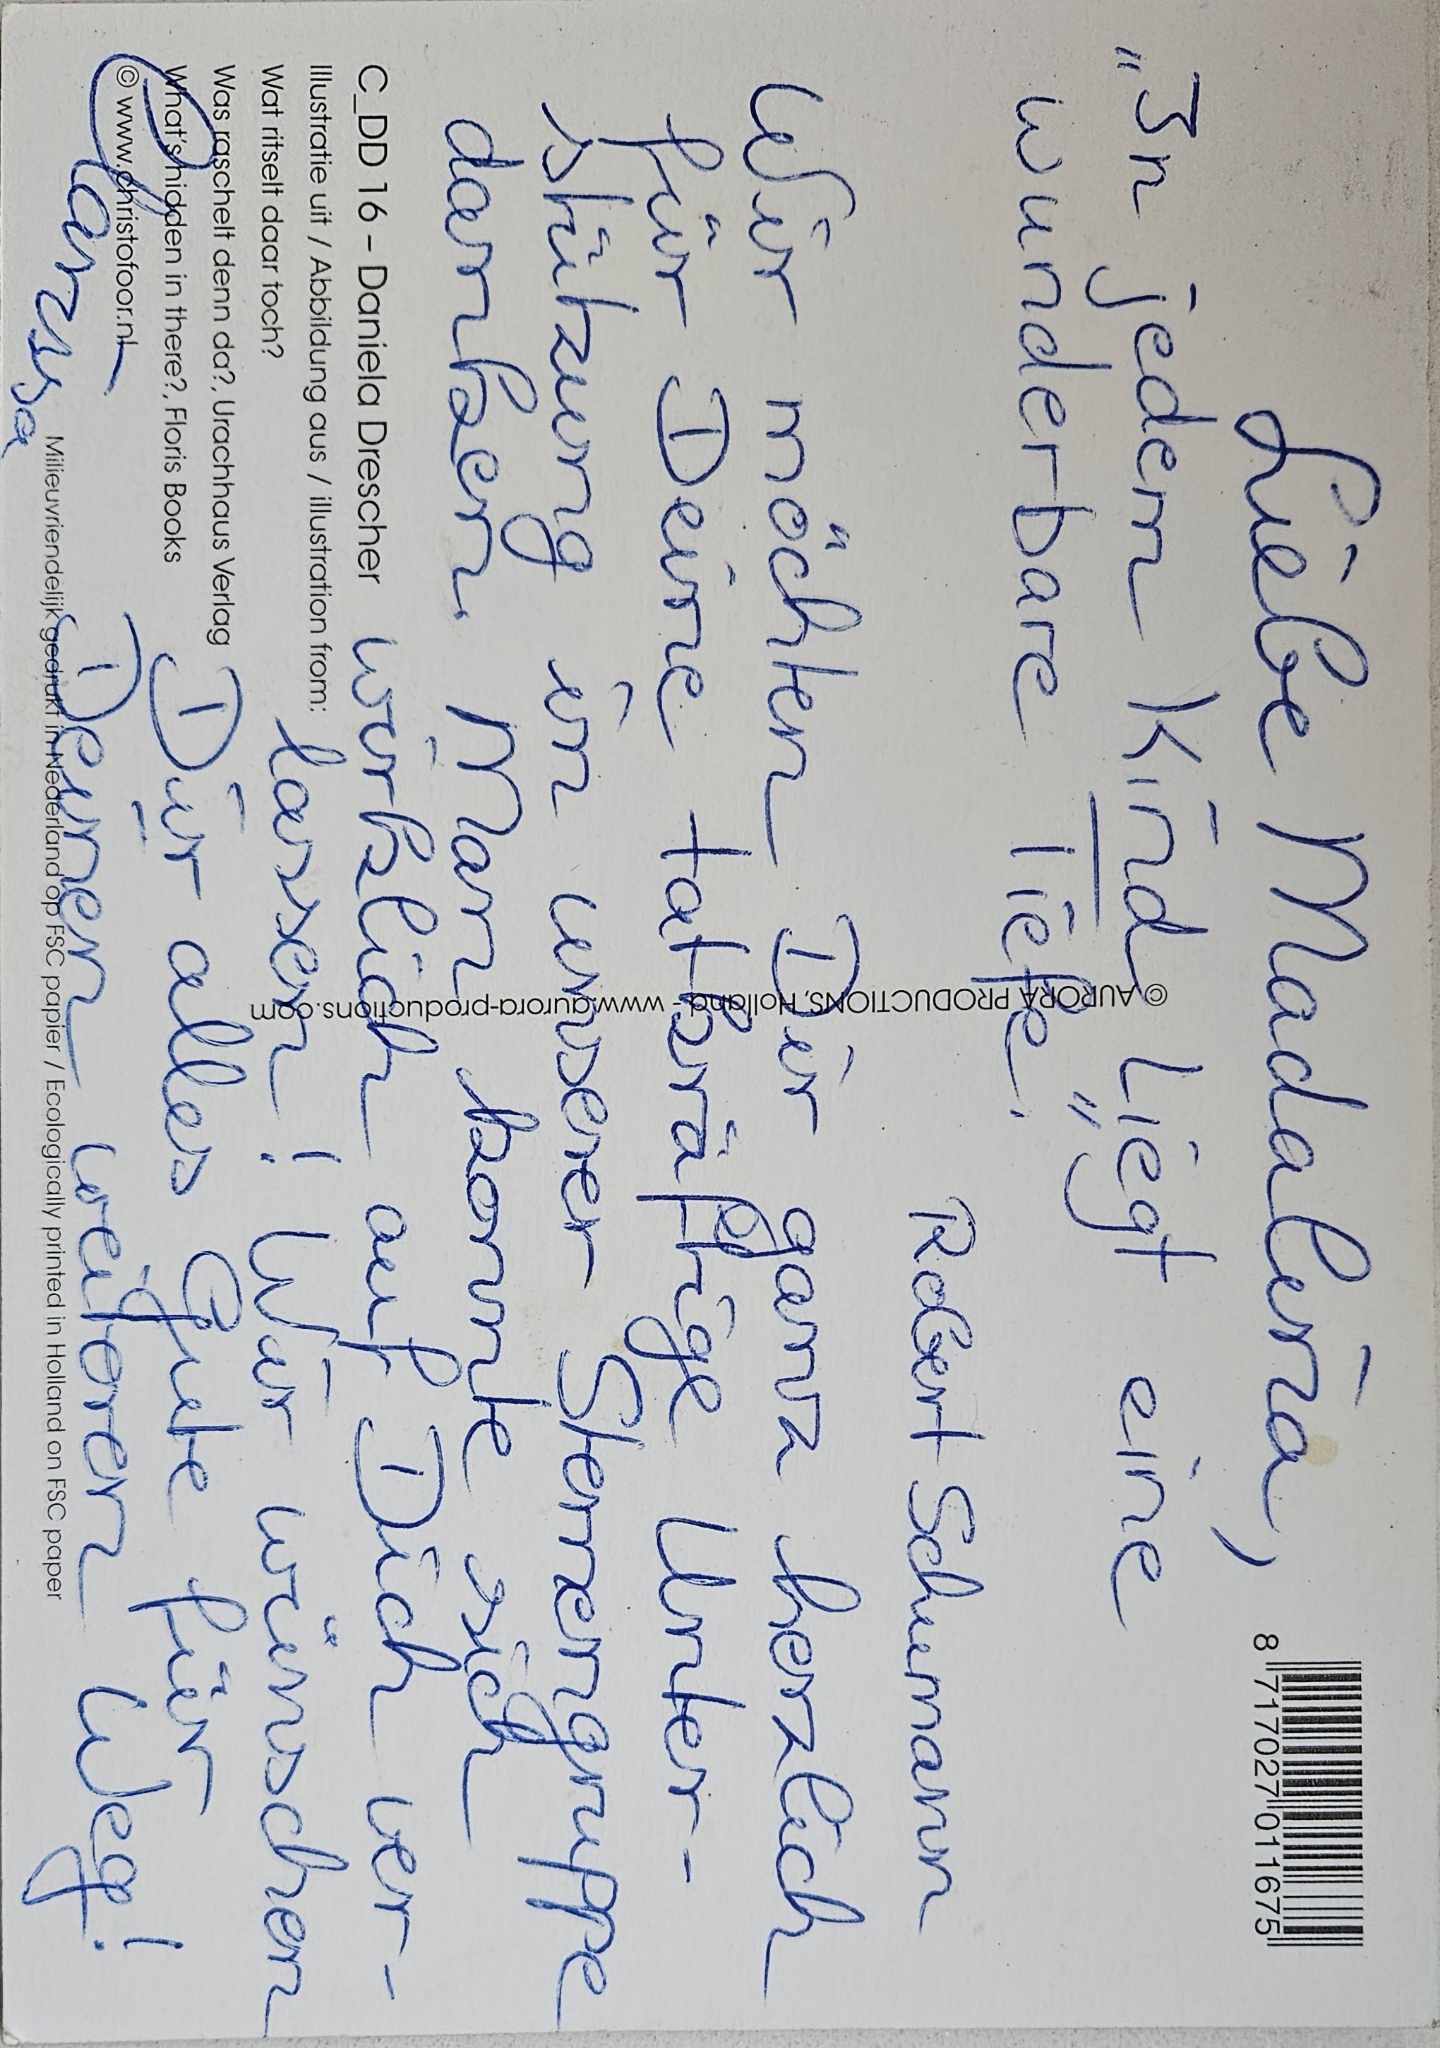 Liebe Madalina,
8 717027 011675
„In jedem Kind liegt eine
wunderbare Tiefe."
Robert Schumann
Wir möchten Dir ganz herzlich
für Deine tatkräftige Unter-
stützung in unserer Sternengruppe
danken. Man konnte sich
wirklich auf Dich ver-
lassen! Wir wünschen
Dir alles Gute für
Deinen weiteren Weg!
Clarissa
© AURORA PRODUCTIONS, Holland - www.aurora-productions.com
C_DD 16 – Daniela Drescher
Illustratie uit / Abbildung aus / illustration from:
Wat ritselt daar toch?
Was raschelt denn da?, Urachhaus Verlag
What's hidden in there?, Floris Books
© www.christofoor.nl
Milieuvriendelijk gedrukt in Nederland op FSC papier / Ecologically printed in Holland on FSC paper